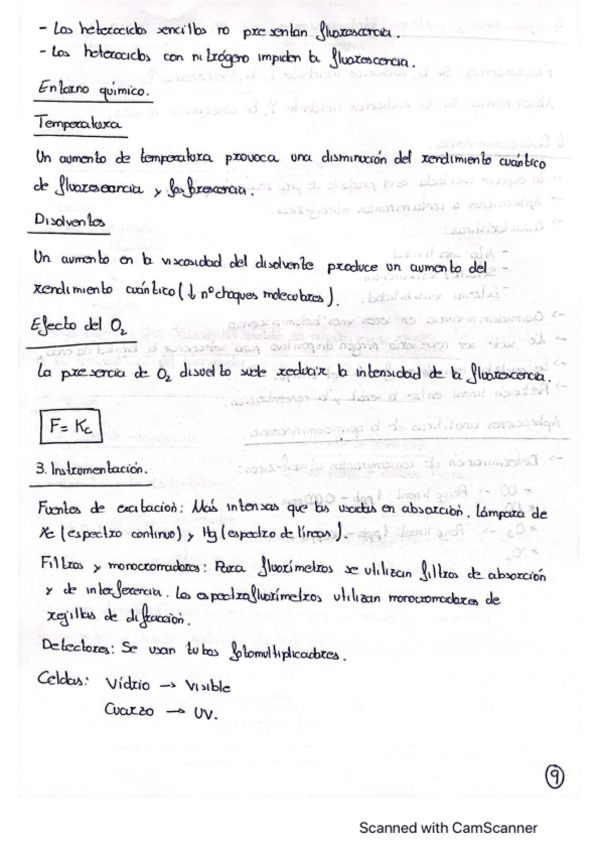 - Los heterociclos sencillos no presentan fluorescencia.
- Los heterociclos con nitrógeno impiden la fluorescencia.
Entorno químico.
Temperatura
Un aumento de temperatura provoca una disminución del rendimiento cuántico
de fluorescencia y fosforescencia.
Disolventes
Un aumento en la viscosidad del disolvente produce un aumento del
rendimiento cuántico (↓ nº choques moleculares).
Efecto del O₂
La presencia de O₂ disuelto suele reducir la intensidad de la fluorescencia.
F = Kc
3. Instrumentación.
Fuentes de excitación: Más intensas que las usadas en absorción. Lámpara de
Xe (espectro continuo) y Hg (espectro de líneas).
Filtros y monocromadores: Para fluorímetros se utilizan filtros de absorción
y de interferencia. Los espectrofluorímetros utilizan monocromadores de
rejillas de difracción.
Detectores: Se usan tubos fotomultiplicadores.
Celdas: Vidrio → Visible
Cuarzo → UV.
9
Scanned with CamScanner